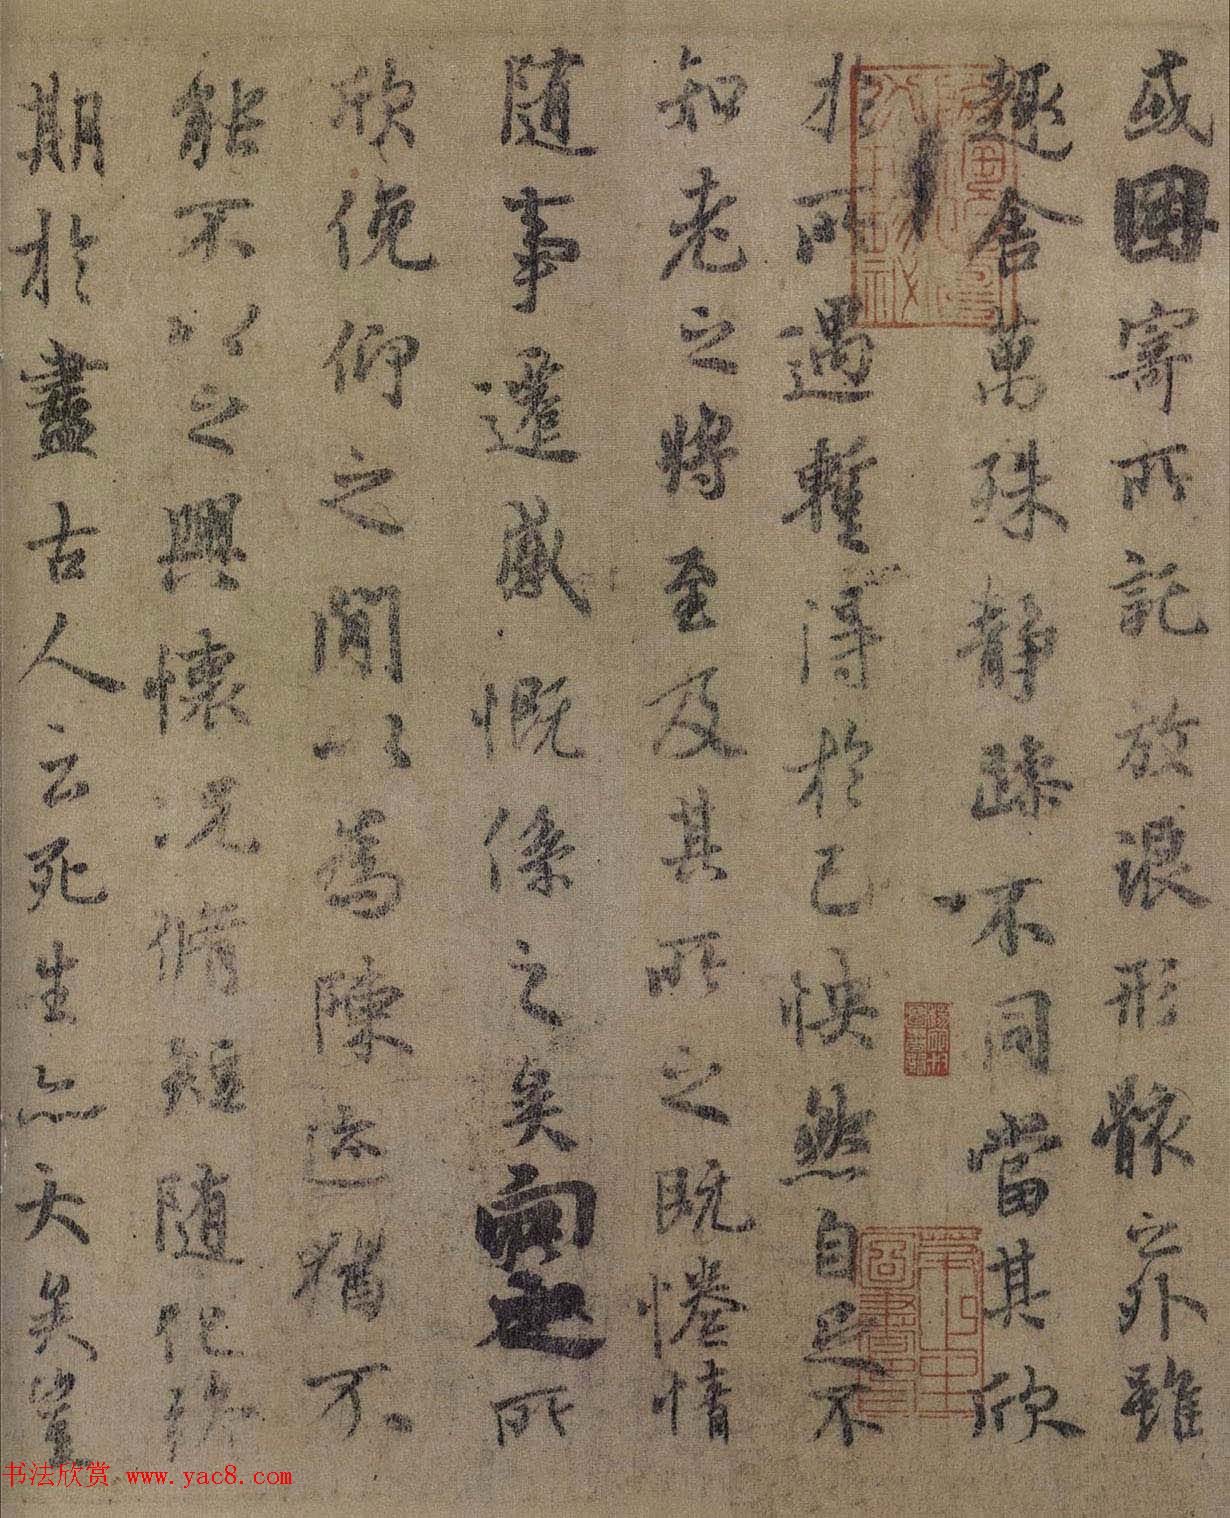 或因寄所託放浪形骸之外雖
趣舍萬殊静躁不同當其欣
於所遇暫得於己怏然自足不
知老之將至及其所之既惓情
随事遷感慨係之矣向之所
欣俛仰之間以為陳迹猶不
能不以之興懷況脩短随化終
期於盡古人云死生亦大矣豈
书法欣赏 www.yac8.com